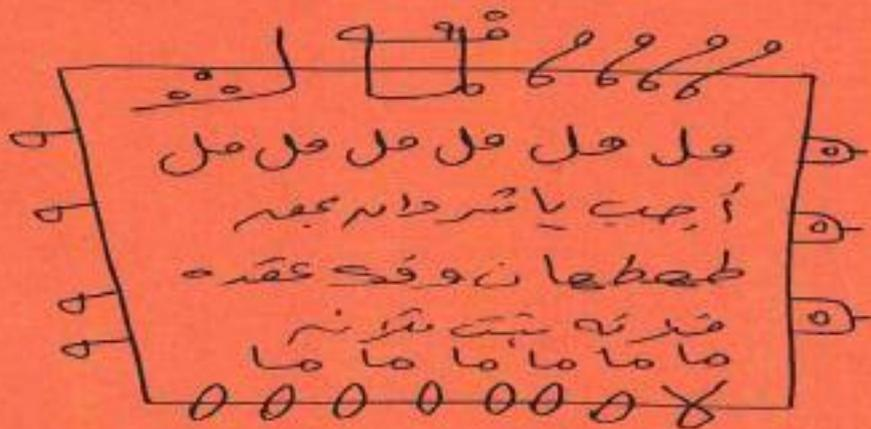 هل هل هل هل هل هل
أجب يا شردانه بحق
طهطهان وفك عقده
فلانه بنت فلانه
ما ما ما ما ما ما